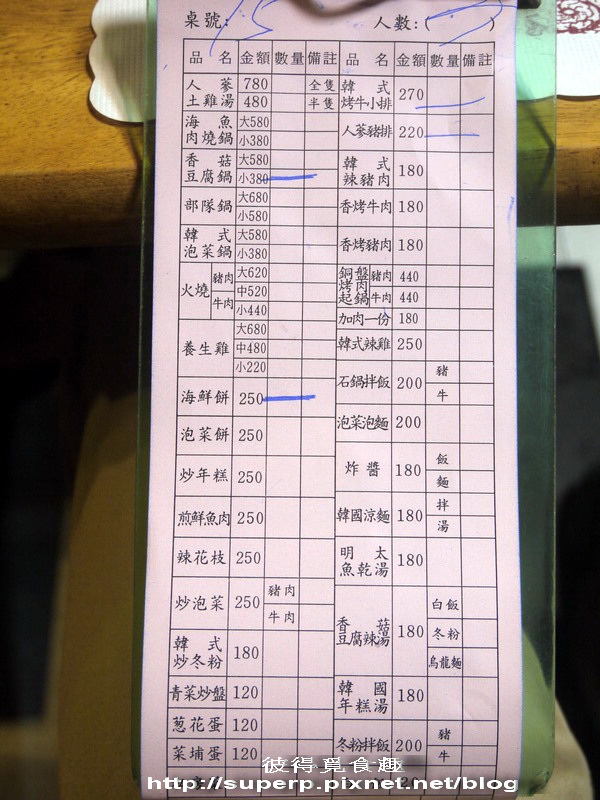 桌號: 15 人數:( )
品名 金額 數量 備註 品名 金額 數量 備註
人蔘土雞湯 780 全隻
480 半隻
韓式烤牛小排 270
海魚肉燒鍋 大580
小380
人蔘豬排 220
香菇豆腐鍋 大580
小380
韓式辣豬肉 180
部隊鍋 大680
小580
香烤牛肉 180
韓式泡菜鍋 大580
小380
香烤豬肉 180
火燒 豬肉 牛肉 大620
中520
小440
銅盤烤肉起鍋 豬肉 440
牛肉 440
加肉一份 180
養生雞 大680
中480
小220
韓式辣雞 250
石鍋拌飯 200 豬
牛
海鮮餅 250
泡菜泡麵 200
泡菜餅 250
炸醬 180 飯
麵
炒年糕 250
韓國涼麵 180 拌
湯
煎鮮魚肉 250
明太魚乾湯 180
辣花枝 250
香菇豆腐辣湯 180 白飯
冬粉
烏龍麵
炒泡菜 250 豬肉
牛肉
韓式炒冬粉 180
韓國年糕湯 180
青菜炒盤 120
蔥花蛋 120
冬粉拌飯 200 豬
牛
菜埔蛋 120
彼得覓食趣
http://superp.pixnet.net/blog